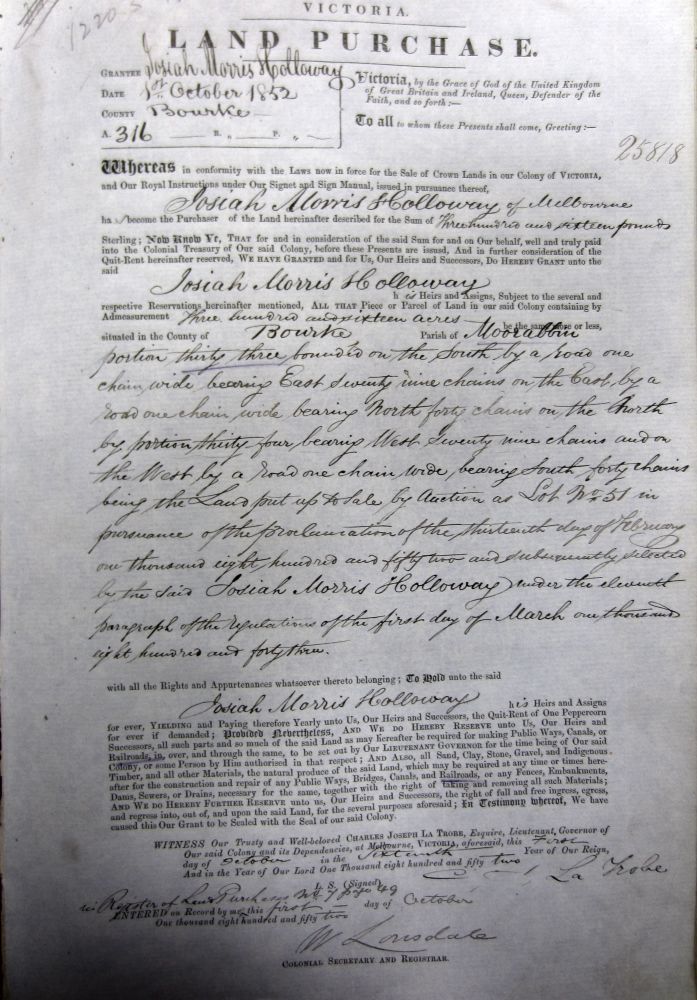 1220 5
VICTORIA.
LAND PURCHASE.
GRANTEE Josiah Morris Holloway
DATE 1st October 1852
COUNTY Bourke
A. 316 R. „ P. „
Victoria, by the Grace of God of the United Kingdom
of Great Britain and Ireland, Queen, Defender of the
Faith, and so forth:—
To all to whom these Presents shall come, Greeting:—
25818
Whereas in conformity with the Laws now in force for the Sale of Crown Lands in our Colony of VICTORIA,
and Our Royal Instructions under Our Signet and Sign Manual, issued in pursuance thereof,
Josiah Morris Holloway of Melbourne
ha s become the Purchaser of the Land hereinafter described for the Sum of Three hundred and sixteen pounds
Sterling; Now Know Ye, THAT for and in consideration of the said Sum for and on Our behalf, well and truly paid
into the Colonial Treasury of Our said Colony, before these Presents are issued, And in further consideration of the
Quit-Rent hereinafter reserved, WE HAVE GRANTED and for Us, Our Heirs and Successors, DO HEREBY GRANT unto the
said
Josiah Morris Holloway
h is Heirs and Assigns, Subject to the several and
respective Reservations hereinafter mentioned, ALL THAT Piece or Parcel of Land in our said Colony containing by
Admeasurement Three hundred and sixteen acres be the same more or less,
situated in the County of Bourke Parish of Moorabbin
portion thirty three bounded on the South by a road one
chain wide bearing East twenty nine chains on the East, by a
road one chain wide bearing North forty chains on the North
by portion thirty four bearing West twenty nine chains and on
the West by a road one chain wide bearing South forty chains
being the Land put up to Sale by Auction as Lot No. 51 in
pursuance of the proclamation of the thirteenth day of February
one thousand eight hundred and fifty two and subsequently selected
by the said Josiah Morris Holloway under the eleventh
paragraph of the regulations of the first day of March one thousand
eight hundred and forty three.
with all the Rights and Appurtenances whatsoever thereto belonging; To Hold unto the said
Josiah Morris Holloway h is Heirs and Assigns
for ever, YIELDING and Paying therefore Yearly unto Us, Our Heirs and Successors, the Quit-Rent of One Peppercorn
for ever if demanded; Provided Nevertheless, AND WE DO HEREBY RESERVE unto Us, Our Heirs and
Successors, all such parts and so much of the said Land as may hereafter be required for making Public Ways, Canals, or
Railroads, in, over, and through the same, to be set out by Our LIEUTENANT GOVERNOR for the time being of Our said
Colony, or some Person by Him authorised in that respect; AND ALSO, all Sand, Clay, Stone, Gravel, and Indigenous
Timber, and all other Materials, the natural produce of the said Land, which may be required at any time or times here-
after for the construction and repair of any Public Ways, Bridges, Canals, and Railroads, or any Fences, Embankments,
Dams, Sewers, or Drains, necessary for the same, together with the right of taking and removing all such Materials;
AND WE DO HEREBY FURTHER RESERVE unto us, Our Heirs and Successors, the right of full and free ingress, egress,
and regress into, out of, and upon the said Land, for the several purposes aforesaid; In Testimony whereof, We have
caused this Our Grant to be Sealed with the Seal of our said Colony.
WITNESS Our Trusty and Well-beloved CHARLES JOSEPH LA TROBE, Esquire, Lieutenant, Governor of
Our said Colony and its Dependencies, at Melbourne, VICTORIA, aforesaid, this First
day of October in the Sixteenth Year of Our Reign,
And in the Year of Our Lord One Thousand eight hundred and fifty two
C. J. La Trobe
L. S. (Signed)
in Register of Land Purchases No. 7 page 49
ENTERED on Record by me, this first day of October
One thousand eight hundred and fifty two
W Lonsdale
COLONIAL SECRETARY AND REGISTRAR.